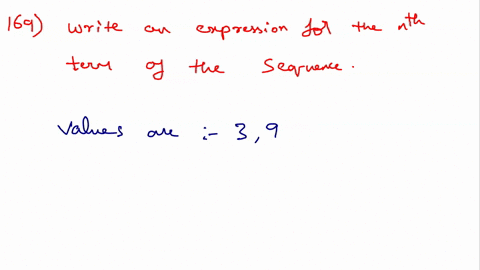 169) write an expression for the nth
term of the sequence.
values are :- 3, 9